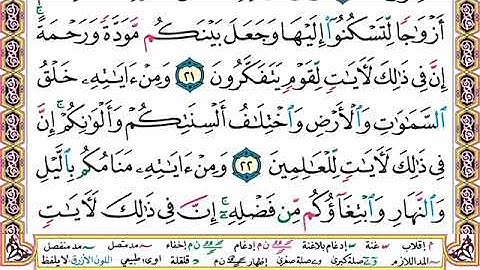 أَزْوَٰجًا لِّتَسْكُنُوٓا۟ إِلَيْهَا وَجَعَلَ بَيْنَكُم مَّوَدَّةً وَرَحْمَةً ۚ
إِنَّ فِى ذَٰلِكَ لَءَايَٰتٍ لِّقَوْمٍ يَتَفَكَّرُونَ ٢١ وَمِنْ ءَايَٰتِهِۦ خَلْقُ
ٱلسَّمَٰوَٰتِ وَٱلْأَرْضِ وَٱخْتِلَٰفُ أَلْسِنَتِكُمْ وَأَلْوَٰنِكُمْ ۚ إِنَّ
فِى ذَٰلِكَ لَءَايَٰتٍ لِّلْعَٰلِمِينَ ٢٢ وَمِنْ ءَايَٰتِهِۦ مَنَامُكُم بِٱلَّيْلِ
وَٱلنَّهَارِ وَٱبْتِغَآؤُكُم مِّن فَضْلِهِۦٓ ۚ إِنَّ فِى ذَٰلِكَ لَءَايَٰتٍ
م إقلاب غنة إدغام بلاغنة ن م إدغام ن م إخفاء مد متصل مد منفصل
المد اللازم وصلة كبرى وصلة صغرى إظهار ن م قلقلة اللون الأزرق لا يلفظ